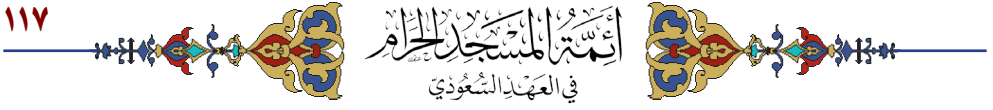 ١١٧
أَئِمَّةُ المَسْجِدِ الحَرَامِ
في العَهْدِ السُّعُودِيّ